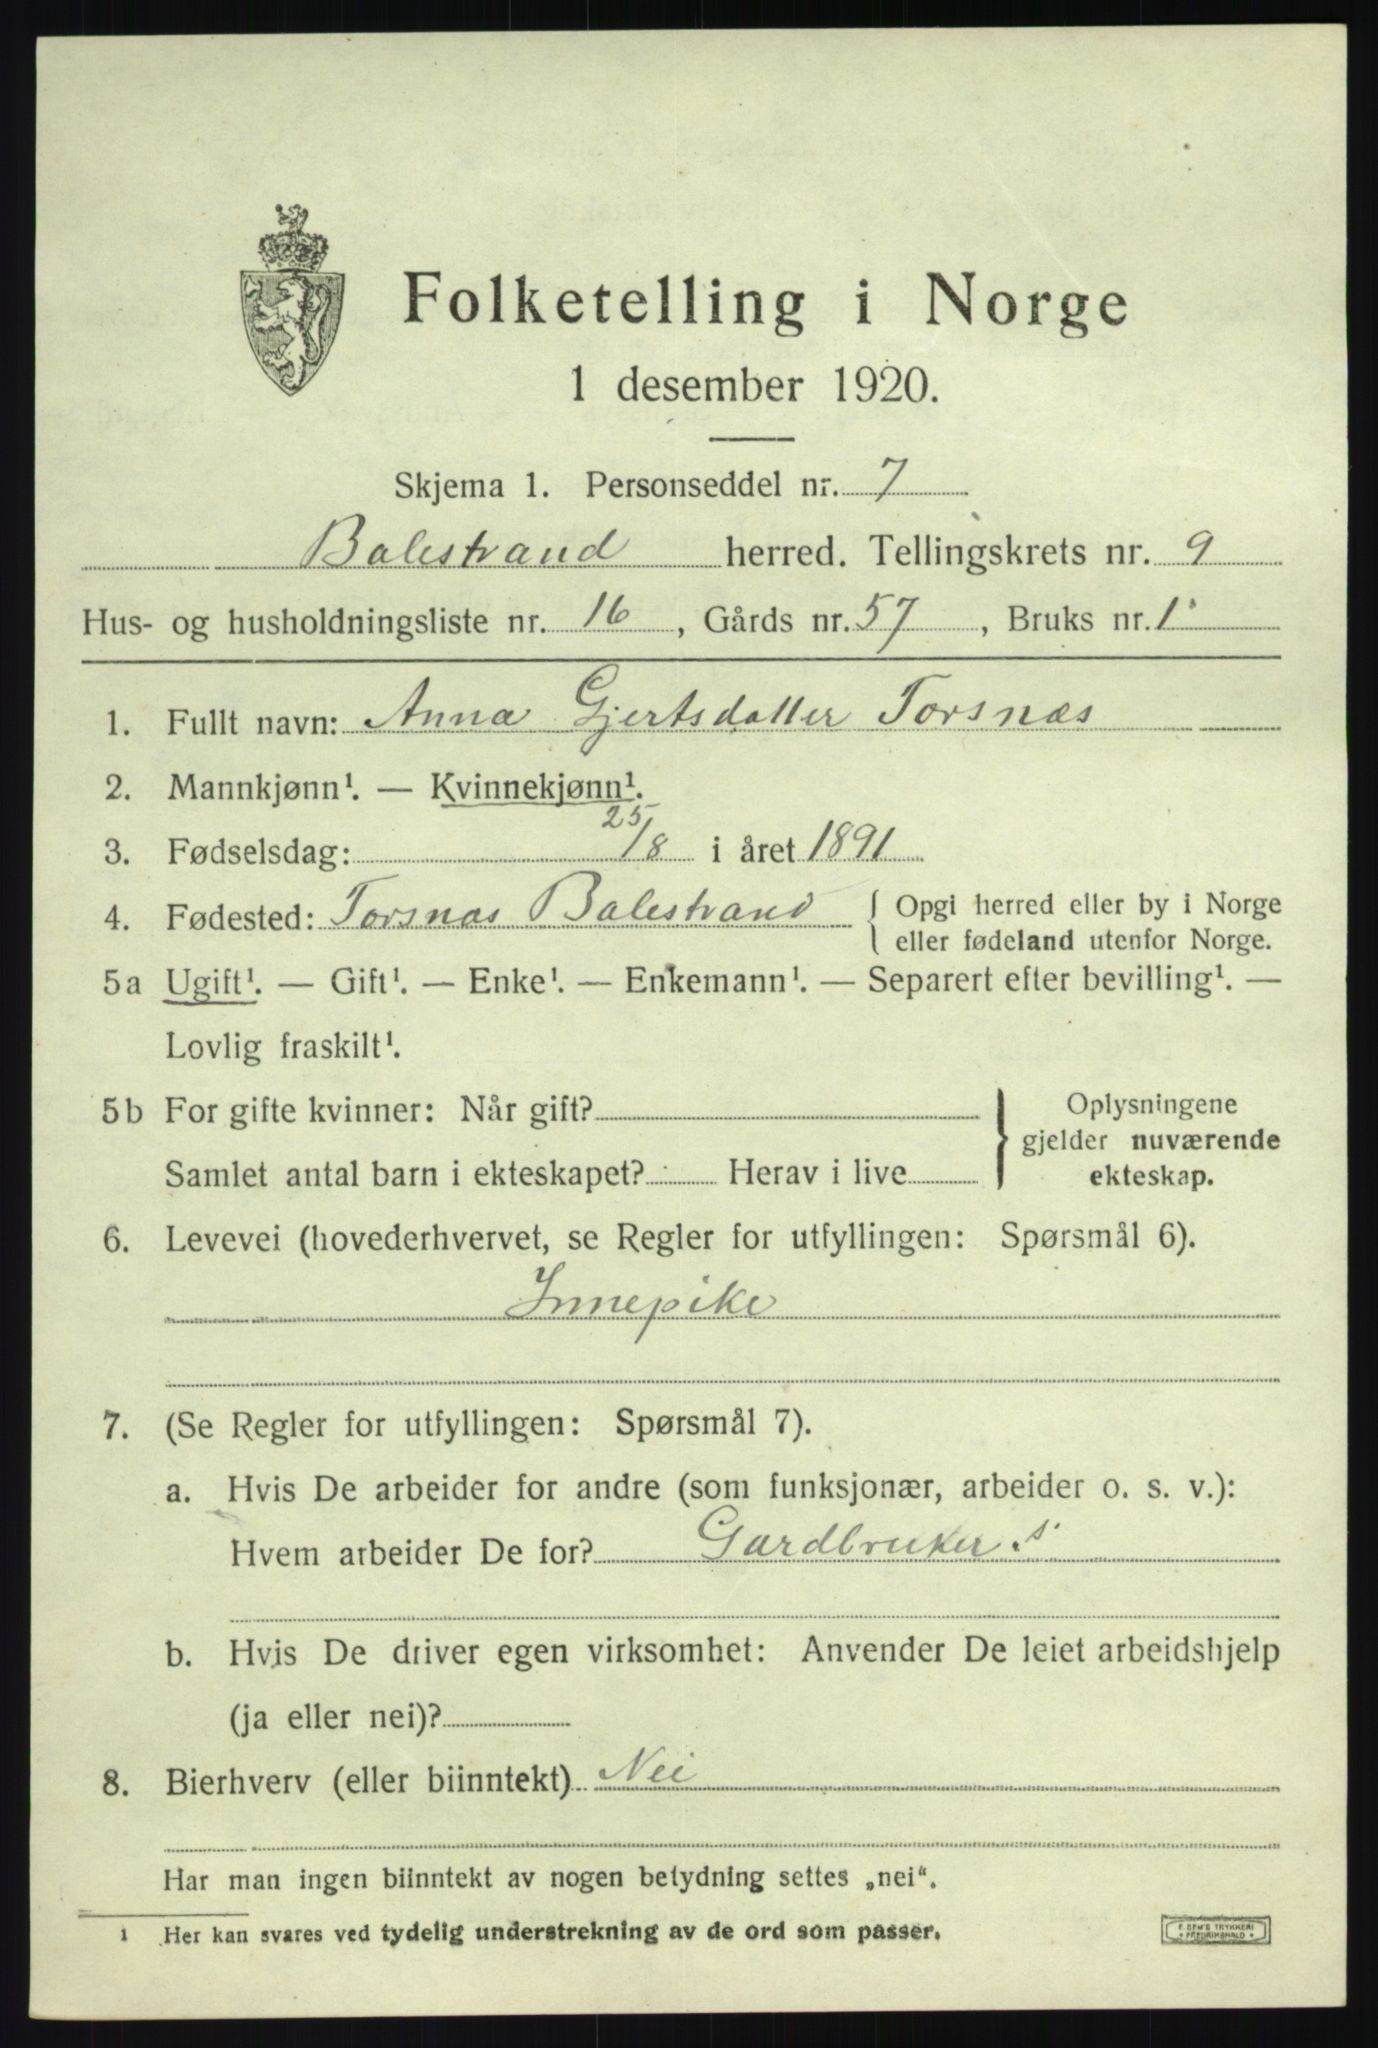 Folketelling i Norge
1 desember 1920.
Skjema 1. Personseddel nr. 7
Balestrand herred. Tellingskrets nr. 9
Hus- og husholdningsliste nr. 16, Gårds nr. 57, Bruks nr. 1
1. Fullt navn: Anna Gjertsdatter Torsnæs
2. Mannkjønn¹. — Kvinnekjønn¹.
3. Fødselsdag: 25/8 i året 1891
4. Fødested: Torsnæs Balestrand { Opgi herred eller by i Norge
eller fødeland utenfor Norge.
5a Ugift¹. — Gift¹. — Enke¹. — Enkemann¹. — Separert efter bevilling¹. —
Lovlig fraskilt¹.
5b For gifte kvinner: Når gift? } Oplysningene
gjelder nuværende
Samlet antal barn i ekteskapet? Herav i live ekteskap.
6. Levevei (hovederhvervet, se Regler for utfyllingen: Spørsmål 6).
Innepike
7. (Se Regler for utfyllingen: Spørsmål 7).
a. Hvis De arbeider for andre (som funksjonær, arbeider o. s. v.):
Hvem arbeider De for? Gardbruker.s
b. Hvis De driver egen virksomhet: Anvender De leiet arbeidshjelp
(ja eller nei)?
8. Bierhverv (eller biinntekt) Nei
Har man ingen biinntekt av nogen betydning settes „nei“.
1 Her kan svares ved tydelig understrekning av de ord som passer.
F. SEM'S TRYKKERI
• FREDRIKSHALD •